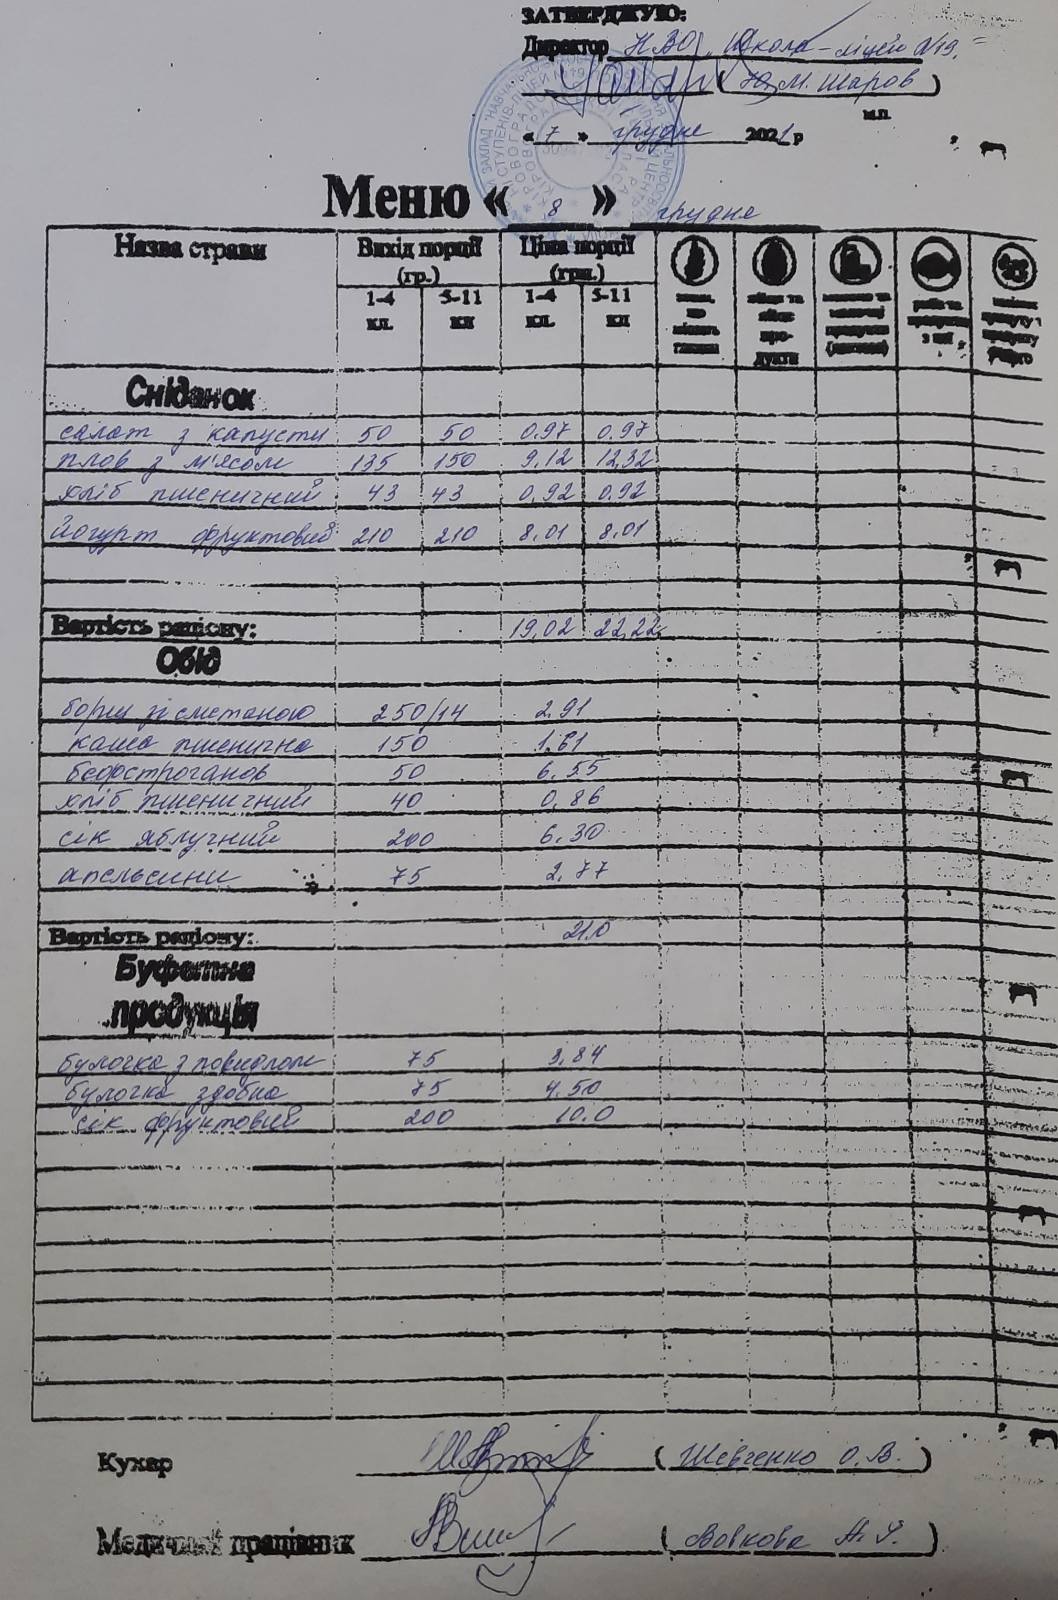 ЗАТВЕРДЖУЮ:
Директор НВО "Школа-ліцей №19"
(Ю.М. Шаров)
м.п.
«7» грудне 2021 р
Меню «8» грудне
Назва страви Вихід порції (гр.) Ціна порції (грн.)
1-4 кл. 5-11 кл 1-4 кл. 5-11 кл
Сніданок
салат з капусти 50 50 0.97 0.97
плов з м'ясом 135 150 9,12 12,32
хліб пшеничний 43 43 0,92 0.92
йогурт фруктовий 210 210 8,01 8,01
Вартість раціону: 19,02 22,22
Обід
борщ зі сметаною 250/14 2.91
каша пшенична 150 1.61
бефстроганов 50 6.55
хліб пшеничний 40 0,86
сік яблучний 200 6.30
апельсини 75 2,77
Вартість раціону: 21.0
Буфетна продукція
булочка з повидлом 75 3,84
булочка здобна 75 4.50
сік фруктовий 200 10.0
Кухар (Шевченко О.В.)
Медичний працівник (Вовкова А.